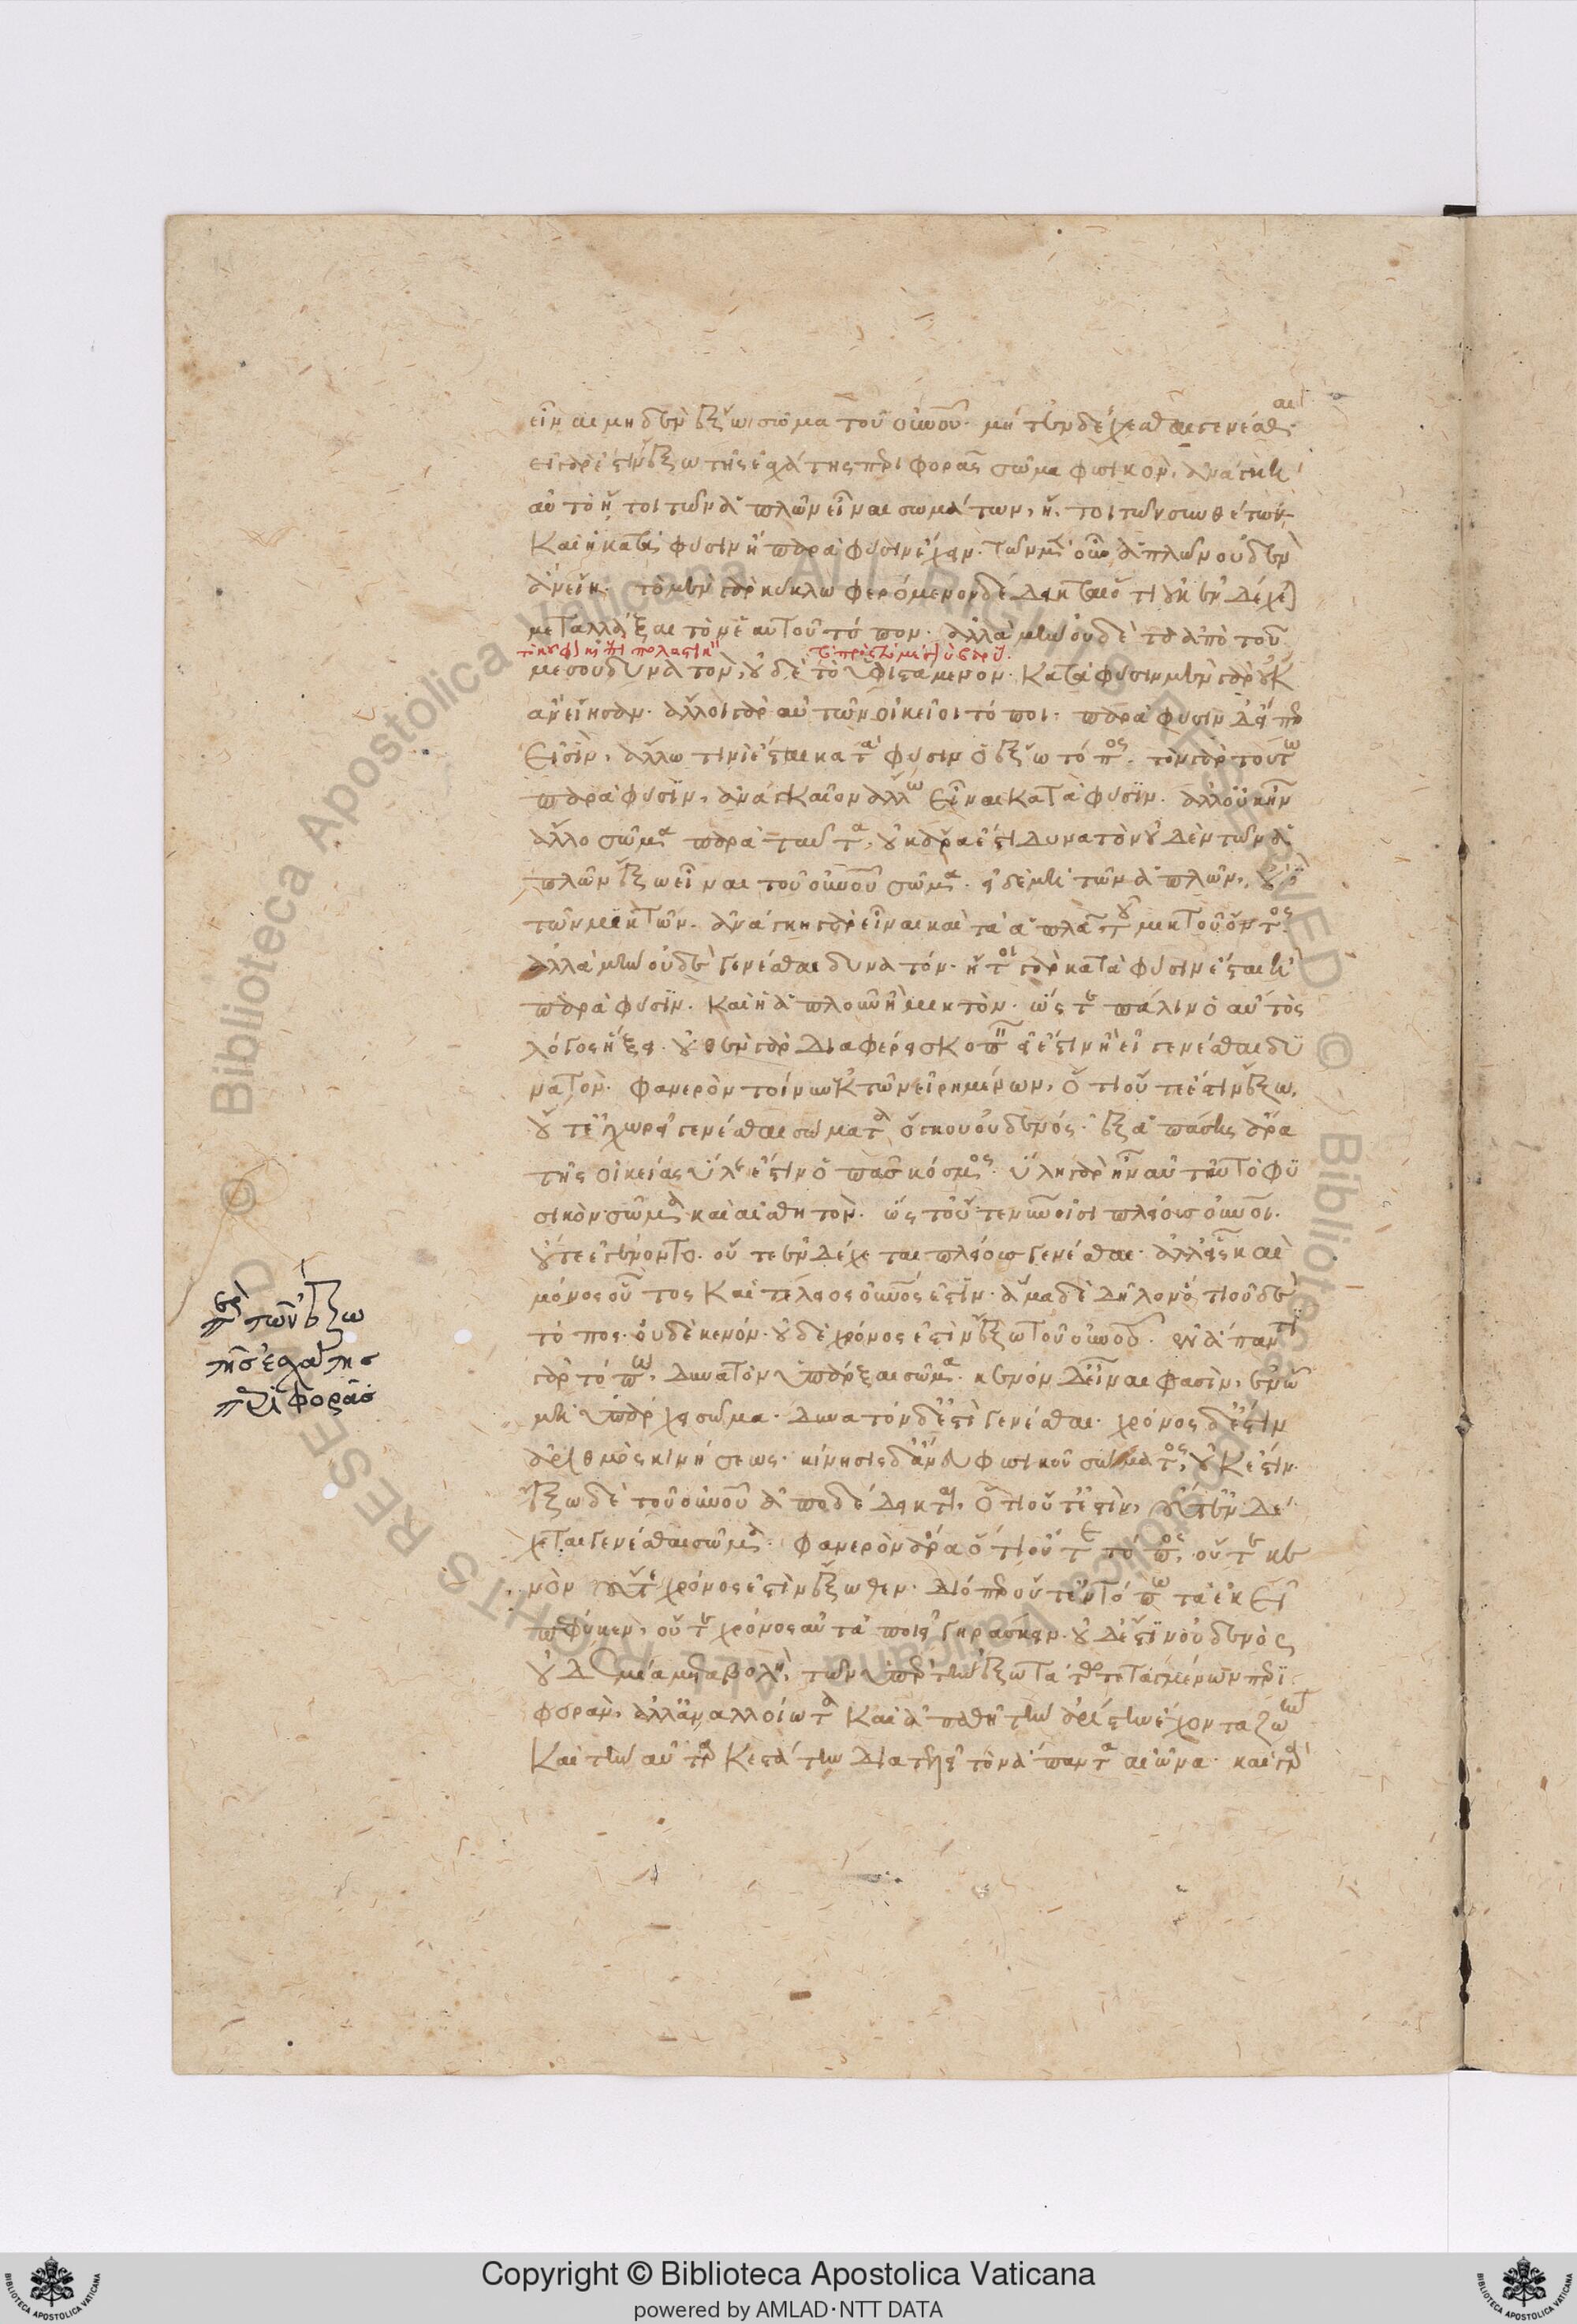 εἶναι μηδὲν ἔξω σῶμα τοῦ οὐνοῦ· μήτ' ἐνδέχεσθαι γενέσθαι·
εἰ γάρ ἐστιν ἔξω τῆς ἐσχάτης περιφορᾶς σῶμα φυσικὸν, ἀνάγκη
αὐτὸ ἤτοι τῶν ἁπλῶν εἶναι σωμάτων, ἤτοι τῶν συνθέτων·
καὶ ἢ κατὰ φύσιν ἢ παρὰ φύσιν ἔχειν· τῶν μὲν οὖν ἁπλῶν οὐδὲν
ἂν εἴη· τὸ μὲν γὰρ κύκλω φερόμενον δέδεικται ὅτι οὐκ ἐνδέχεται
μεταλλάξαι τὸν ἑαυτοῦ τόπον· ἀλλὰ μὴν οὐδὲ τὸ ἀπὸ τοῦ
μέσου δυνατὸν, οὐδὲ τὸ ὑφιστάμενον· κατὰ φύσιν μὲν γὰρ οὐκ
ἂν εἴησαν· ἄλλοι γὰρ αὐτῶν οἰκεῖοι τόποι· παρὰ φύσιν δ' εἴπερ
εἰσὶν, ἄλλω τινὶ ἔσται κατὰ φύσιν ὁ ἔξω τόπος· τὸν γὰρ τούτω
παρὰ φύσιν, ἀναγκαῖον ἄλλω εἶναι κατὰ φύσιν· ἀλλ' οὐκ ἦν
ἄλλο σῶμα παρὰ ταῦτα, οὐκ ἄρα ἐστὶ δυνατὸν οὐδὲν τῶν ἁ
πλῶν ἔξω εἶναι τοῦ οὐνοῦ σῶμα· εἰ δὲ μὴ τῶν ἁπλῶν, οὐδὲ
τῶν μικτῶν· ἀνάγκη γὰρ εἶναι καὶ τὰ ἁπλᾶ τοῦ μικτοῦ ὄντος·
ἀλλὰ μὴν οὐδὲ γενέσθαι δυνατόν· ἤτοι γὰρ κατὰ φύσιν ἔσται ἢ
παρὰ φύσιν· καὶ ἢ ἁπλοῦν ἢ μικτὸν· ὥστε πάλιν ὁ αὐτὸς
λόγος ἥξει· οὐθὲν γὰρ διαφέρει σκοπεῖν εἰ ἔστιν ἢ εἰ γενέσθαι δυ
νατὸν· φανερὸν τοίνυν ἐκ τῶν εἰρημένων, ὅτι οὔτε ἔστιν ἔξω,
οὔτε ἐγχωρεῖ γενέσθαι σώματος ὄγκον οὐδενός· ἐξ ἁπάσης ἄρα
τῆς οἰκείας ὕλης ἐστὶν ὁ πᾶς κόσμος· ὕλη γὰρ ἦν αὐτῶ τὸ φυ
σικὸν σῶμα καὶ αἰσθητὸν· ὥστ' οὔτε νῦν εἰσι πλείους οὐνοί·
οὔτε ἐγένοντο· οὔτε ἐνδέχεται πλείους γενέσθαι· ἀλλ' εἷς καὶ
μόνος οὗτος καὶ τέλειος οὐνός ἐστιν· ἅμα δὲ δῆλον ὅτι οὐδὲ
τόπος· οὐδὲ κενόν· οὐδὲ χρόνος ἐστὶν ἔξω τοῦ οὐνοῦ· ἐν ἅπαντι
γὰρ τόπω, δυνατὸν ὑπάρξαι σῶμα· κενὸν δ' εἶναι φασὶν, ἐν ὧ
μὴ ὑπάρχει σῶμα· δυνατὸν δ' ἐστὶ γενέσθαι· χρόνος δ' ἐστὶν
ἀριθμὸς κινήσεως· κίνησις δ' ἄνευ φυσικοῦ σώματος, οὐκ ἔστιν·
ἔξω δὲ τοῦ οὐνοῦ ἀποδέδεικται, ὅτι οὔτ' ἔστιν, οὔτ' ἐνδέ
χεται γενέσθαι σῶμα· φανερὸν ἄρα ὅτι οὔτε τόπος, οὔτε κε
νὸν οὔτε χρόνος ἐστὶν ἔξωθεν· διόπερ οὔτ' ἐν τόπω τὰ ἐκεῖ
πέφυκεν, οὔτε χρόνος αὐτὰ ποιεῖ γηράσκειν· οὐδ' ἔστιν οὐδενὸς
οὐδεμία μεταβολὴ, τῶν ὑπὲρ τὴν ἐξωτάτω τεταγμένων περι
φορὰν, ἀλλ' ἀναλλοίωτα καὶ ἀπαθῆ τὴν ἀρίστην ἔχοντα ζωὴν
καὶ τὴν αὐταρκεστάτην διατελεῖ τὸν ἅπαντα αἰῶνα· καὶ γὰρ
περὶ τῶν ἔξω
τῆς ἐσχάτης
περιφορᾶς